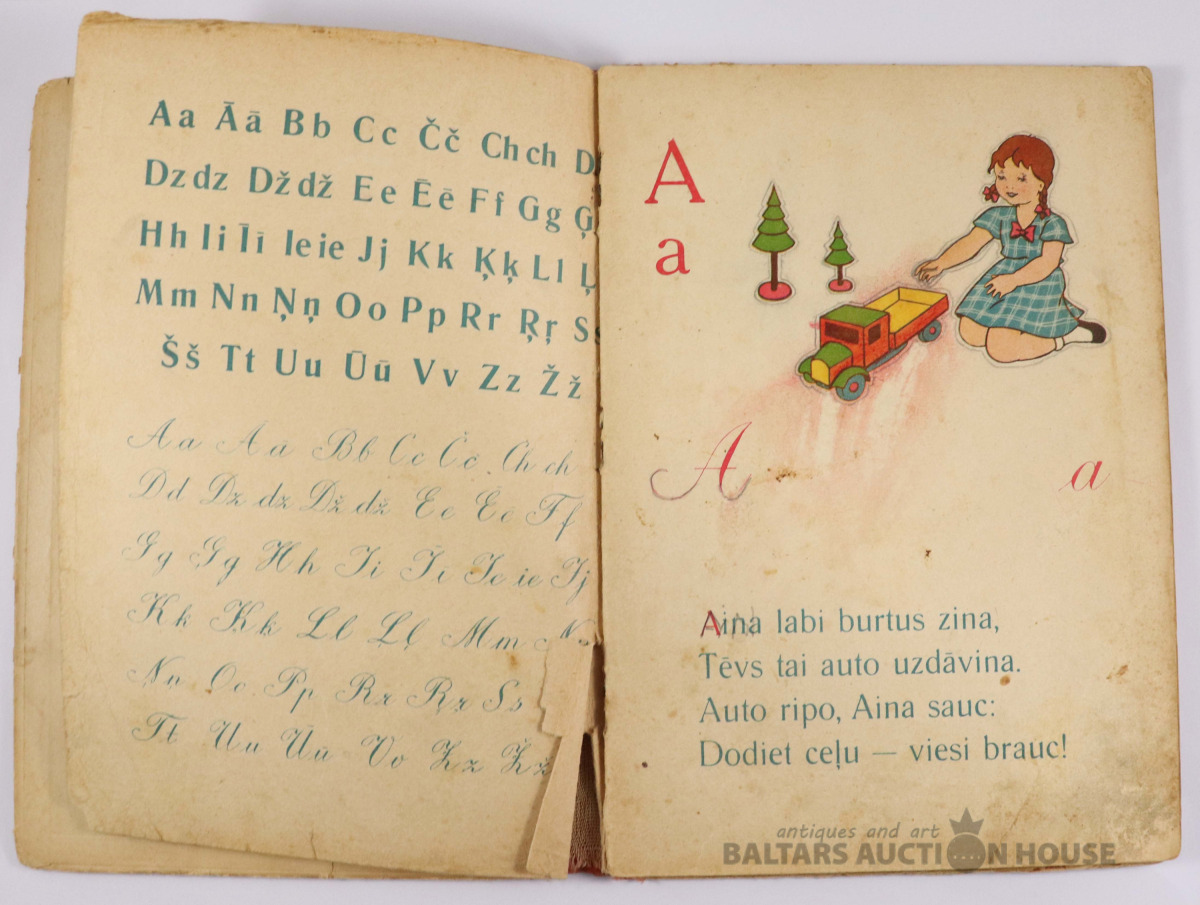 Aa Āā Bb Cc Čč Chch D
Dzdz Dždž Ee Ēē Ff Gg Ģ
Hh Ii Īī Ieie Jj Kk Ķķ Ll Ļ
Mm Nn Ņņ Oo Pp Rr Ŗŗ Ss
Šš Tt Uu Ūū Vv Zz Žž
Aa Āā Bb Cc Čč Ch ch
Dd Dz dz Dž dž Ee Ēē Ff
Gg Ģģ Hh Ii Īī Ie ie Jj
Kk Ķķ Ll Ļļ Mm
Nn Oo Pp Rr Ŗŗ Ss
Tt Uu Ūū Vv Zz Žž
A
a
A a
Aina labi burtus zina,
Tēvs tai auto uzdāvina.
Auto ripo, Aina sauc:
Dodiet ceļu — viesi brauc!
antiques and art
BALTARS AUCTION HOUSE